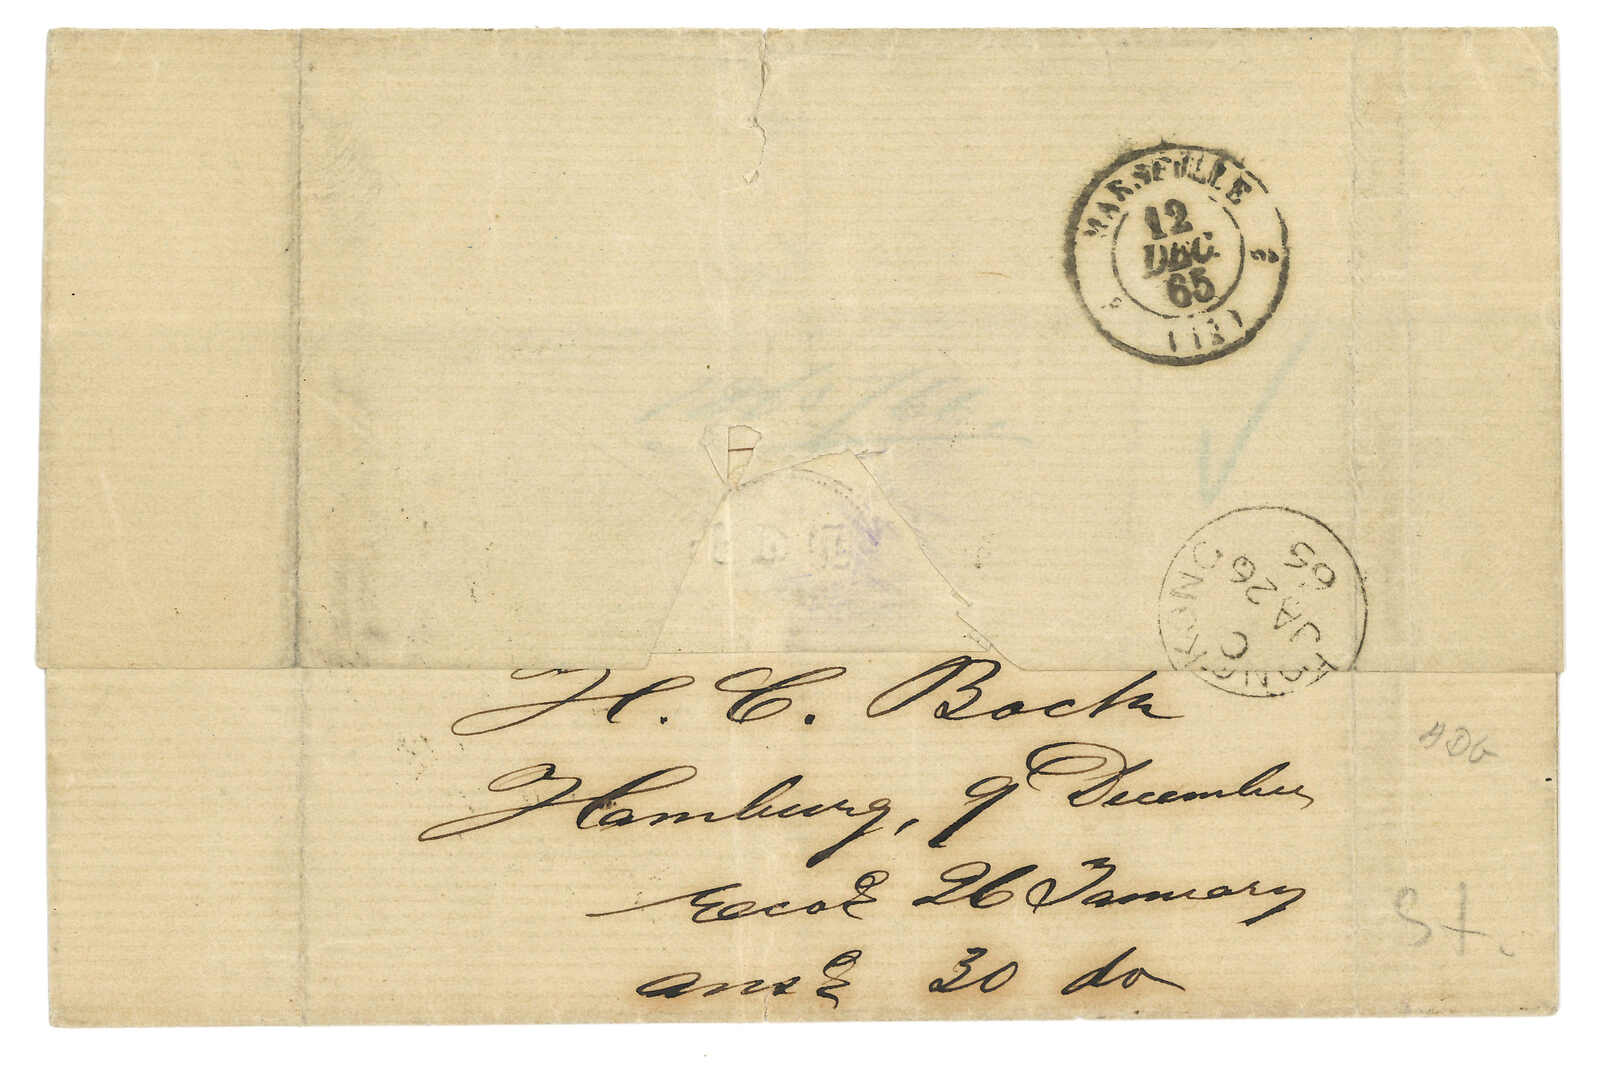 MARSEILLE
12
DEC.
65
(12)
2
HONG KONG
C
JA 26
65
H. C. Bock
Hamburg, 9 December
Recd 26 January
ansd 30 do
ADG
St.